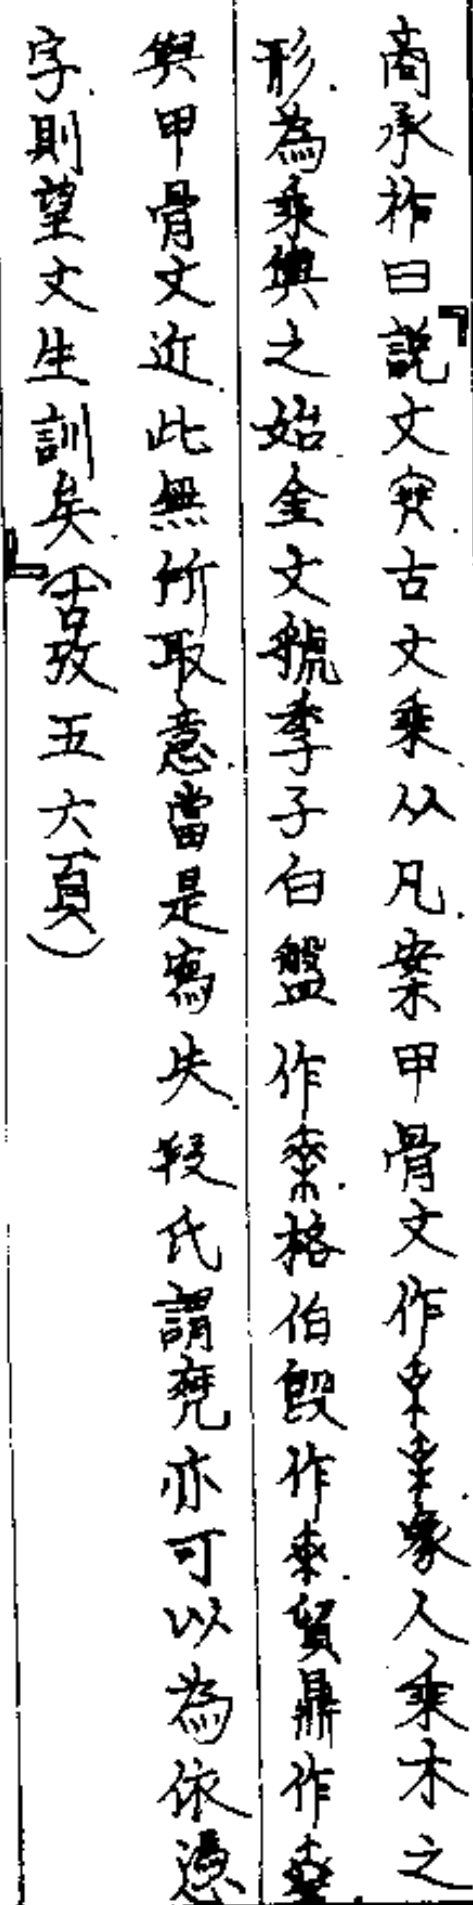 商承祚曰『說文𠅞古文乘从几案甲骨文作象人乘木之
形為乘輿之始金文虢季子白盤作格伯𣪘作貿鼎作
與甲骨文近此無所取意當是寫失段氏謂凳亦可以為依憑
字則望文生訓矣』（古攷五六頁）